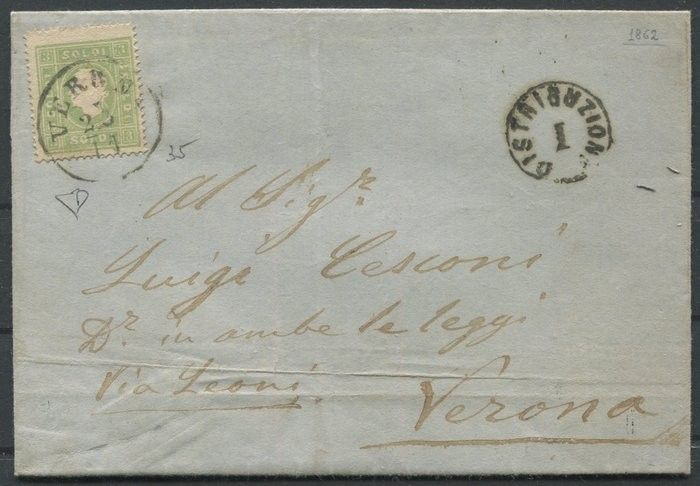 1862
SOLDI
3 3
SOLDI
VERONA
11
35
DISTRIBUZIONE
I
Al Sigr.
Luigi Cesconi
Dr. in ambe le leggi
Via Leoni.
Verona